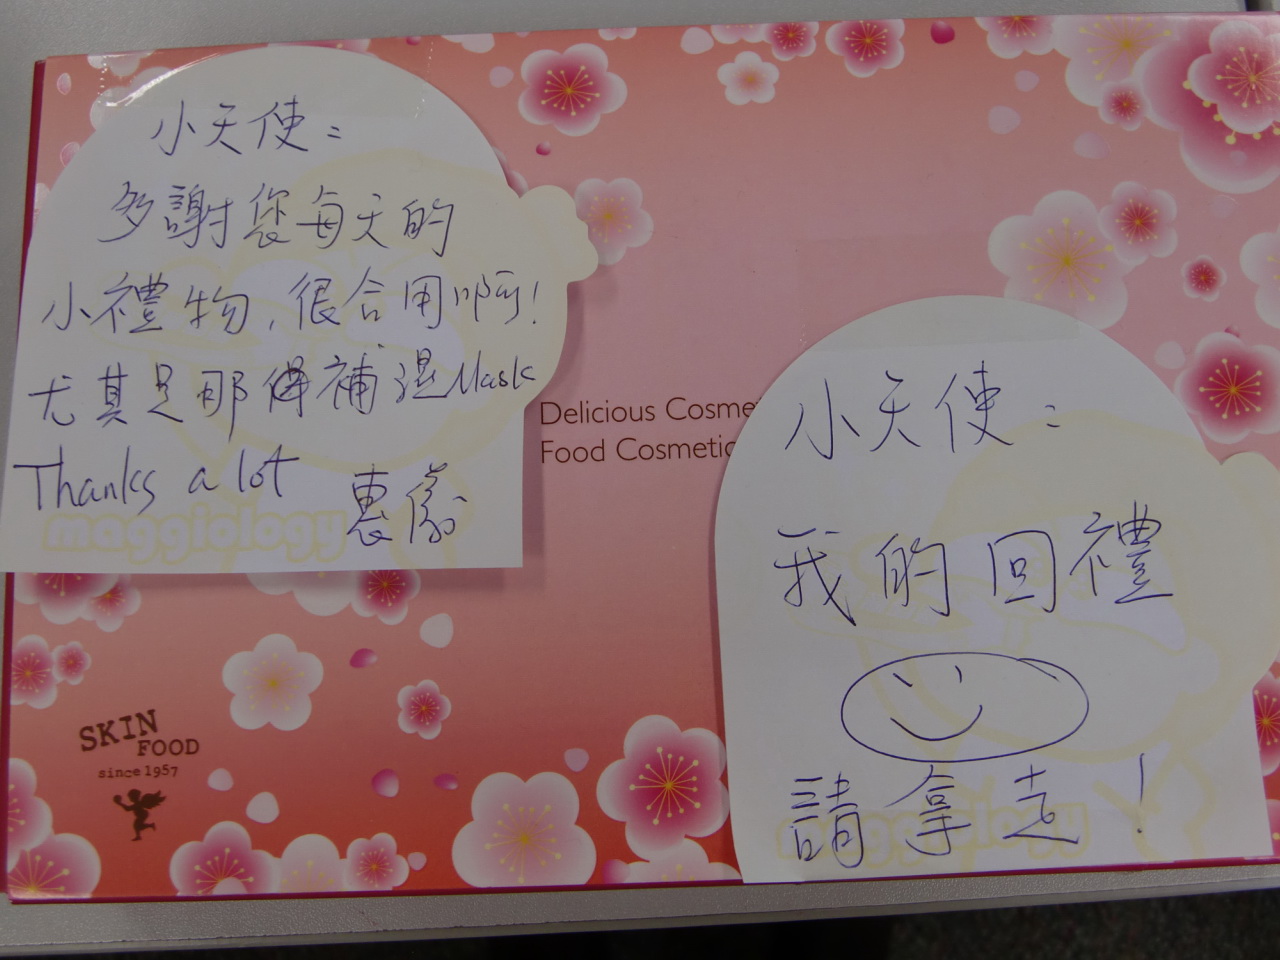 小天使:
多謝您每天的
小禮物,很合用啊!
尤其是那個補濕Mask
Thanks a lot
maggiology
Delicious Cosme
Food Cosmetic
SKIN
FOOD
since 1957
小天使:
我的回禮
請拿走!
maggiology